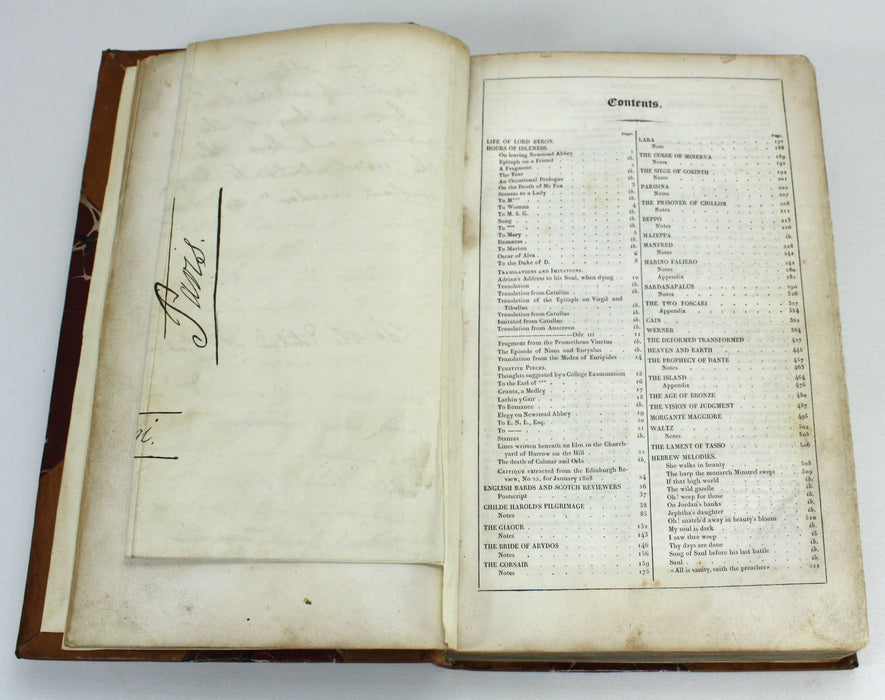 Paris.
Contents.
Page
LIFE OF LORD BYRON.
HOURS OF IDLENESS.
On leaving Newstead Abbey 1
Epitaph on a Friend ib.
A Fragment
The Tear ib.
An Occasional Prologue
On the Death of Mr Fox
Stanzas to a Lady ib.
To M*** ib.
To Woman 4
To M. S. G. ib.
Song ib.
To *** ib.
To Mary 5
Damætas ib.
To Marion ib.
Oscar of Alva 6
To the Duke of D. 8
TRANSLATIONS AND IMITATIONS.
Adrian's Address to his Soul, when dying 10
Translation ib.
Translation from Catullus ib.
Translation of the Epitaph on Virgil and
Tibullus ib.
Translation from Catullus ib.
Imitated from Catullus ib.
Translation from Anacreon ib.
Ode III 11
Fragment from the Prometheus Vinctus ib.
The Episode of Nisus and Euryalus ib.
Translation from the Medea of Euripides 14
FUGITIVE PIECES.
Thoughts suggested by a College Examination 15
To the Earl of *** 16
Granta, a Medley 17
Lachin y Gair 18
To Romance ib.
Elegy on Newstead Abbey 19
To E. N. L., Esq. 20
To —— 21
Stanzas ib.
Lines written beneath an Elm in the Church-
yard of Harrow on the Hill 22
The death of Calmar and Orla ib.
CRITIQUE extracted from the Edinburgh Re-
view, No 22, for January 1808 24
ENGLISH BARDS AND SCOTCH REVIEWERS 26
Postscript 37
CHILDE HAROLD'S PILGRIMAGE 38
Notes 85
THE GIAOUR 132
Notes 143
THE BRIDE OF ABYDOS 146
Notes 156
THE CORSAIR 159
Notes 175
Page.
LARA 177
Note 188
THE CURSE OF MINERVA 189
Notes 191
THE SIEGE OF CORINTH 192
Notes 201
PARISINA 202
Notes 207
THE PRISONER OF CHILLON 208
Notes 211
BEPPO 213
Notes 220
MAZEPPA ib.
MANFRED 228
Notes 241
MARINO FALIERO 242
Notes 280
Appendix 281
SARDANAPALUS 290
Notes 326
THE TWO FOSCARI 327
Appendix 354
CAIN 361
WERNER 384
THE DEFORMED TRANSFORMED 427
HEAVEN AND EARTH 445
THE PROPHECY OF DANTE 457
Notes 463
THE ISLAND 464
Appendix 476
THE AGE OF BRONZE 480
THE VISION OF JUDGMENT 487
MORGANTE MAGGIORE 495
WALTZ 502
Notes 505
THE LAMENT OF TASSO 506
HEBREW MELODIES.
She walks in beauty 508
The harp the monarch Minstrel swept 509
If that high world ib.
The wild gazelle ib.
Oh! weep for those ib.
On Jordan's banks ib.
Jephtha's daughter ib.
Oh! snatch'd away in beauty's bloom 510
My soul is dark ib.
I saw thee weep ib.
Thy days are done ib.
Song of Saul before his last battle ib.
Saul ib.
«All is vanity, saith the preacher» 511